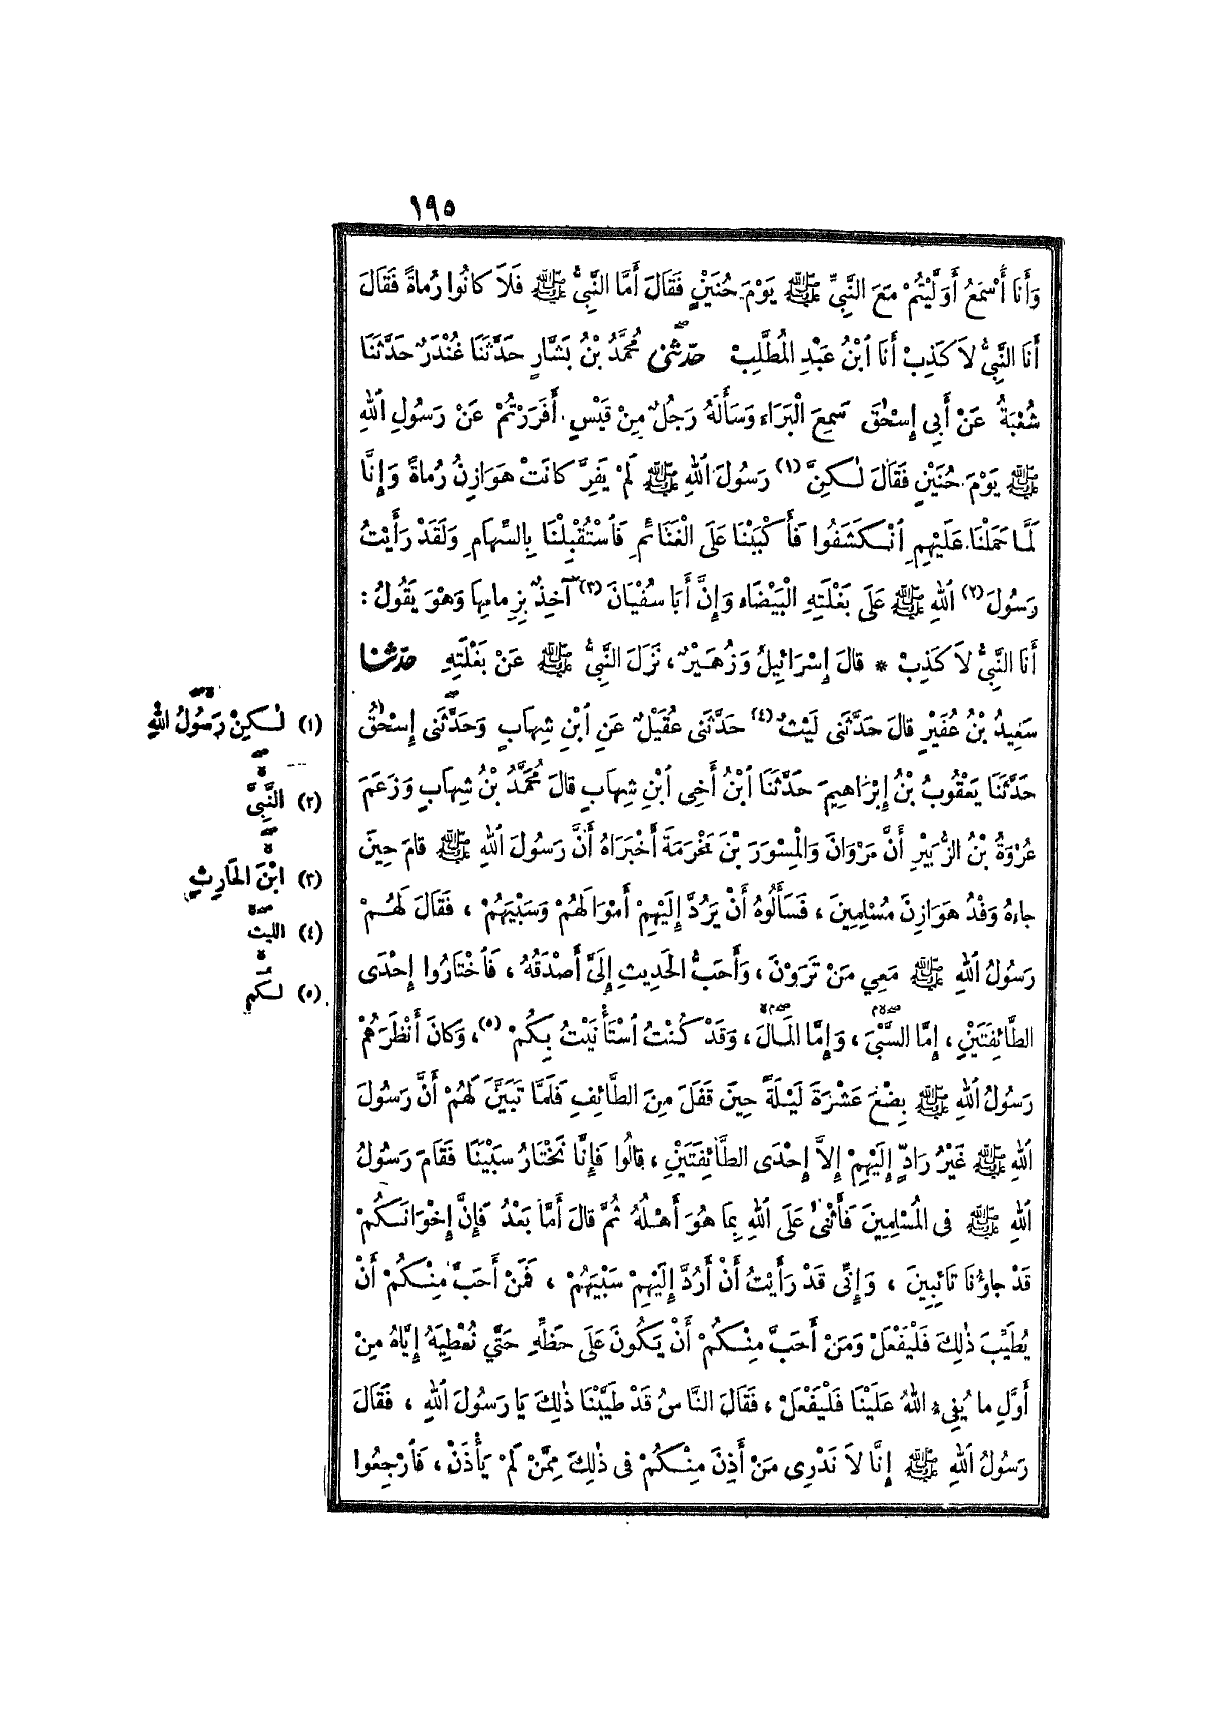 ١٩٥
وَأَنَا أَسْمَعُ أَوَلَّيْتُمْ مَعَ النَّبِيِّ ﷺ يَوْمَ حُنَيْنٍ فَقَالَ أَمَّا النَّبِيُّ ﷺ فَلاَ كانُوا رُماةً فَقَالَ
أَنَا النَّبِيُّ لاَ كَذِبْ أَنَا ٱبْنُ عَبْدِ الْمُطَّلِبْ حَدَّثَنِي مُحَمَّدُ بْنُ بَشَّارٍ حَدَّثَنَا غُنْدَرٌ حَدَّثَنَا
شُعْبَةُ عَنْ أَبِي إِسْحٰقَ سَمِعَ الْبَرَاءَ وَسَأَلَهُ رَجُلٌ مِنْ قَيْسٍ أَفَرَرْتُمْ عَنْ رَسُولِ ٱللهِ
ﷺ يَوْمَ حُنَيْنٍ فَقَالَ لٰكِنَّ (١) رَسُولَ ٱللهِ ﷺ لَمْ يَفِرَّ كانَتْ هَوَازِنُ رُماةً وَإِنَّا
لَمَّا حَمَلْنَا عَلَيْهِمِ ٱنْكَشَفُوا فَأَكْبَبْنَا عَلَى الْغَنَائِمِ فَٱسْتُقْبِلْنَا بِالسِّهَامِ وَلَقَدْ رَأَيْتُ
رَسُولَ (٢) ٱللهِ ﷺ عَلَى بَغْلَتِهِ الْبَيْضَاءِ وَإِنَّ أَبَا سُفْيَانَ (٣) آخِذٌ بِزِمامِهَا وَهْوَ يَقُولُ :
أَنَا النَّبِيُّ لاَ كَذِبْ * قالَ إِسْرَائِيلُ وَزُهَيْرٌ ، نَزَلَ النَّبِيُّ ﷺ عَنْ بَغْلَتِهِ حَدَّثَنَا
سَعِيدُ بْنُ عُفَيْرٍ قالَ حَدَّثَنِي لَيْثٌ (٤) حَدَّثَنِي عُقَيْلٌ عَنِ ٱبْنِ شِهَابٍ وَحَدَّثَنِي إِسْحٰقُ
حَدَّثَنَا يَعْقُوبُ بْنُ إِبْرَاهِيمَ حَدَّثَنَا ٱبْنُ أَخِي ٱبْنِ شِهَابٍ قالَ مُحَمَّدُ بْنُ شِهَابٍ وَزَعَمَ
عُرْوَةُ بْنُ الزُّبَيْرِ أَنَّ مَرْوَانَ وَالْمِسْوَرَ بْنَ مَخْرَمَةَ أَخْبَرَاهُ أَنَّ رَسُولَ ٱللهِ ﷺ قامَ حِينَ
جاءَهُ وَفْدُ هَوَازِنَ مُسْلِمِينَ ، فَسَأَلُوهُ أَنْ يَرُدَّ إِلَيْهِمْ أَمْوَالَهُمْ وَسَبْيَهُمْ ، فَقَالَ لَهُمْ
رَسُولُ ٱللهِ ﷺ مَعِي مَنْ تَرَوْنَ ، وَأَحَبُّ الْحَدِيثِ إِلَيَّ أَصْدَقُهُ ، فَٱخْتَارُوا إِحْدَى
الطَّائِفَتَيْنِ ، إِمَّا السَّبْيَ ، وَإِمَّا الْمَالَ ، وَقَدْ كُنْتُ ٱسْتَأْنَيْتُ بِكُمْ (٥) ، وَكانَ أَنْظَرَهُمْ
رَسُولُ ٱللهِ ﷺ بِضْعَ عَشْرَةَ لَيْلَةً حِينَ قَفَلَ مِنَ الطَّائِفِ فَلَمَّا تَبَيَّنَ لَهُمْ أَنَّ رَسُولَ
ٱللهِ ﷺ غَيْرُ رَادٍّ إِلَيْهِمْ إِلاَّ إِحْدَى الطَّائِفَتَيْنِ ، قالُوا فَإِنَّا نَخْتَارُ سَبْيَنَا فَقَامَ رَسُولُ
ٱللهِ ﷺ في الْمُسْلِمِينَ فَأَثْنىٰ عَلَى ٱللهِ بِمَا هُوَ أَهْلُهُ ثُمَّ قالَ أَمَّا بَعْدُ فَإِنَّ إِخْوَانَكُمْ
قَدْ جاؤُنَا تَائِبِينَ ، وَإِنِّي قَدْ رَأَيْتُ أَنْ أَرُدَّ إِلَيْهِمْ سَبْيَهُمْ ، فَمَنْ أَحَبَّ مِنْكُمْ أَنْ
يُطَيِّبَ ذٰلِكَ فَلْيَفْعَلْ وَمَنْ أَحَبَّ مِنْكُمْ أَنْ يَكُونَ عَلَى حَظِّهِ حَتَّى نُعْطِيَهُ إِيَّاهُ مِنْ
أَوَّلِ ما يُفِيءُ اللهُ عَلَيْنَا فَلْيَفْعَلْ ، فَقَالَ النَّاسُ قَدْ طَيَّبْنَا ذٰلِكَ يَا رَسُولَ ٱللهِ ، فَقَالَ
رَسُولُ ٱللهِ ﷺ إِنَّا لاَ نَدْرِي مَنْ أَذِنَ مِنْكُمْ في ذٰلِكَ مِمَّنْ لَمْ يَأْذَنْ ، فَٱرْجِعُوا
(١) لٰكِنْ رَسُولُ اللهِ
(٢) النَّبِيَّ
(٣) ابْنَ الحَارِثِ
(٤) الليث
(٥) لَكم